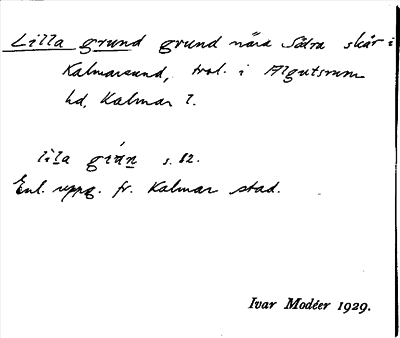 Lilla grund grund nära Södra skär i
Kalmarsund, trol. i Algutsrum
hd, Kalmar l.
lila s. 82.
Enl. uppg. fr. Kalmar stad.
Ivar Modéer 1929.